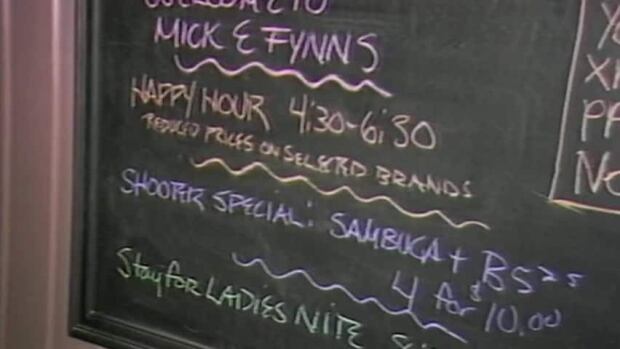 WELCOME TO
MICK & FYNNS
HAPPY HOUR 4:30-6:30
REDUCED PRICES ON SELECTED BRANDS
SHOOTER SPECIAL: SAMBUCA + B52s
4 for $10.00
Stay for LADIES NITE
No